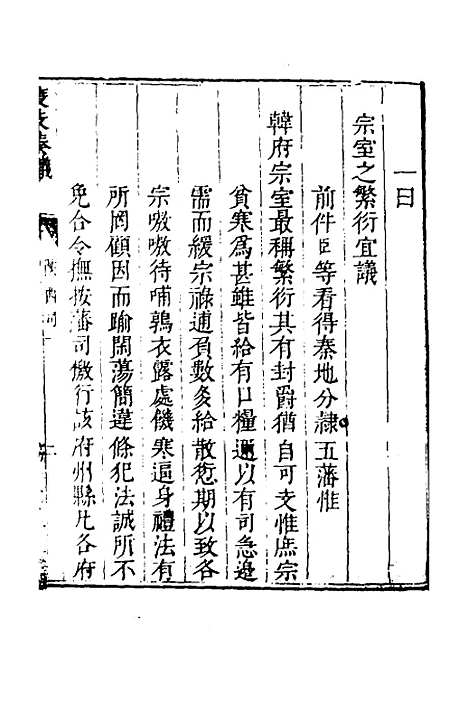 一曰
宗室之繁衍宜議
前件臣等看得秦地分隷五藩惟
韓府宗室最稱繁衍其有封爵猶自可支惟庶宗
貧寒為甚雖皆給有口糧邇以有司急邉
需而緩宗祿逋負數多給散愆期以致各
宗嗷嗷待哺鶉衣露處饑寒逼身禮法有
所罔顧因而踰閑蕩簡違條犯法誠所不
免合令撫按藩司儆行該府州縣凡各府
奏議
陝西司